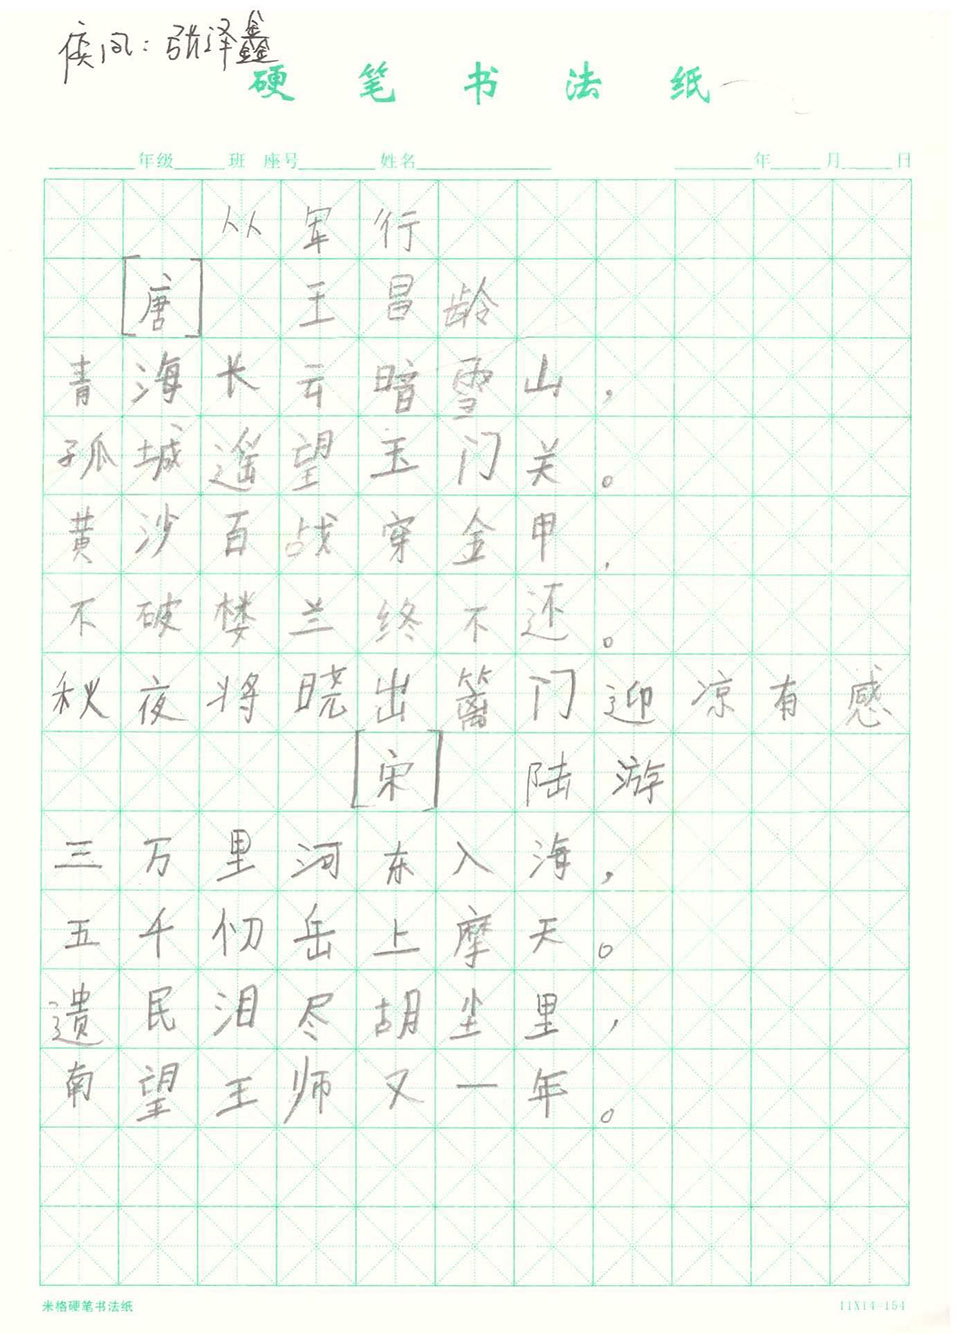 侯凤：张泽鑫
硬笔书法纸
年级 班 座号 姓名 年 月 日
从军行
[唐] 王昌龄
青海长云暗雪山，
孤城遥望玉门关。
黄沙百战穿金甲，
不破楼兰终不还。
秋夜将晓出篱门迎凉有感
[宋] 陆游
三万里河东入海，
五千仞岳上摩天。
遗民泪尽胡尘里，
南望王师又一年。
米格硬笔书法纸 11X14=154